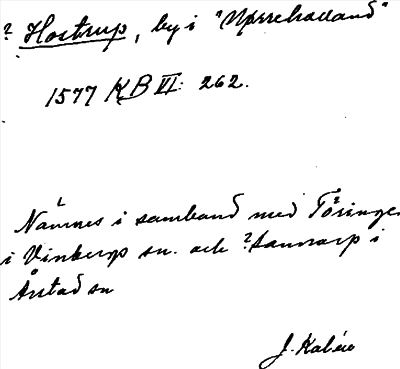 ? Hostrup, by i "Nørrehalland"
1577 KB VI: 262.
Nämnes i samband med Töringe
i Vinbergs sn. och ? i
Årstad sn
J. Kalén